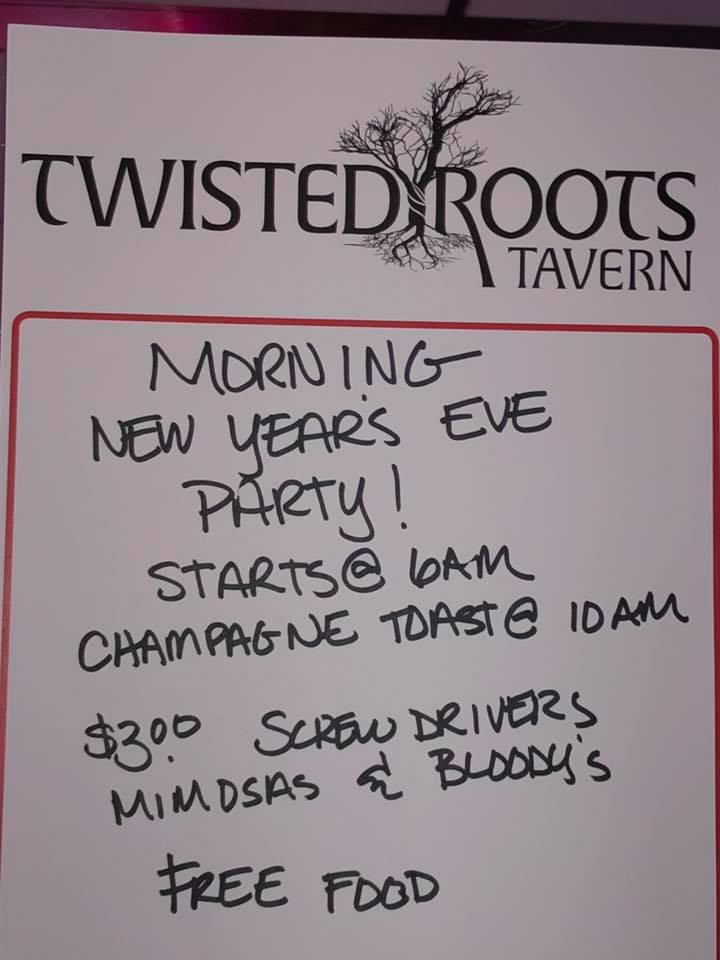 TWISTED ROOTS
TAVERN
MORNING
NEW YEAR'S EVE
PARTY!
STARTS@ 6AM
CHAMPAGNE TOAST@ 10AM
$3.00 SCREWDRIVERS
MIMOSAS & BLOODY'S
FREE FOOD